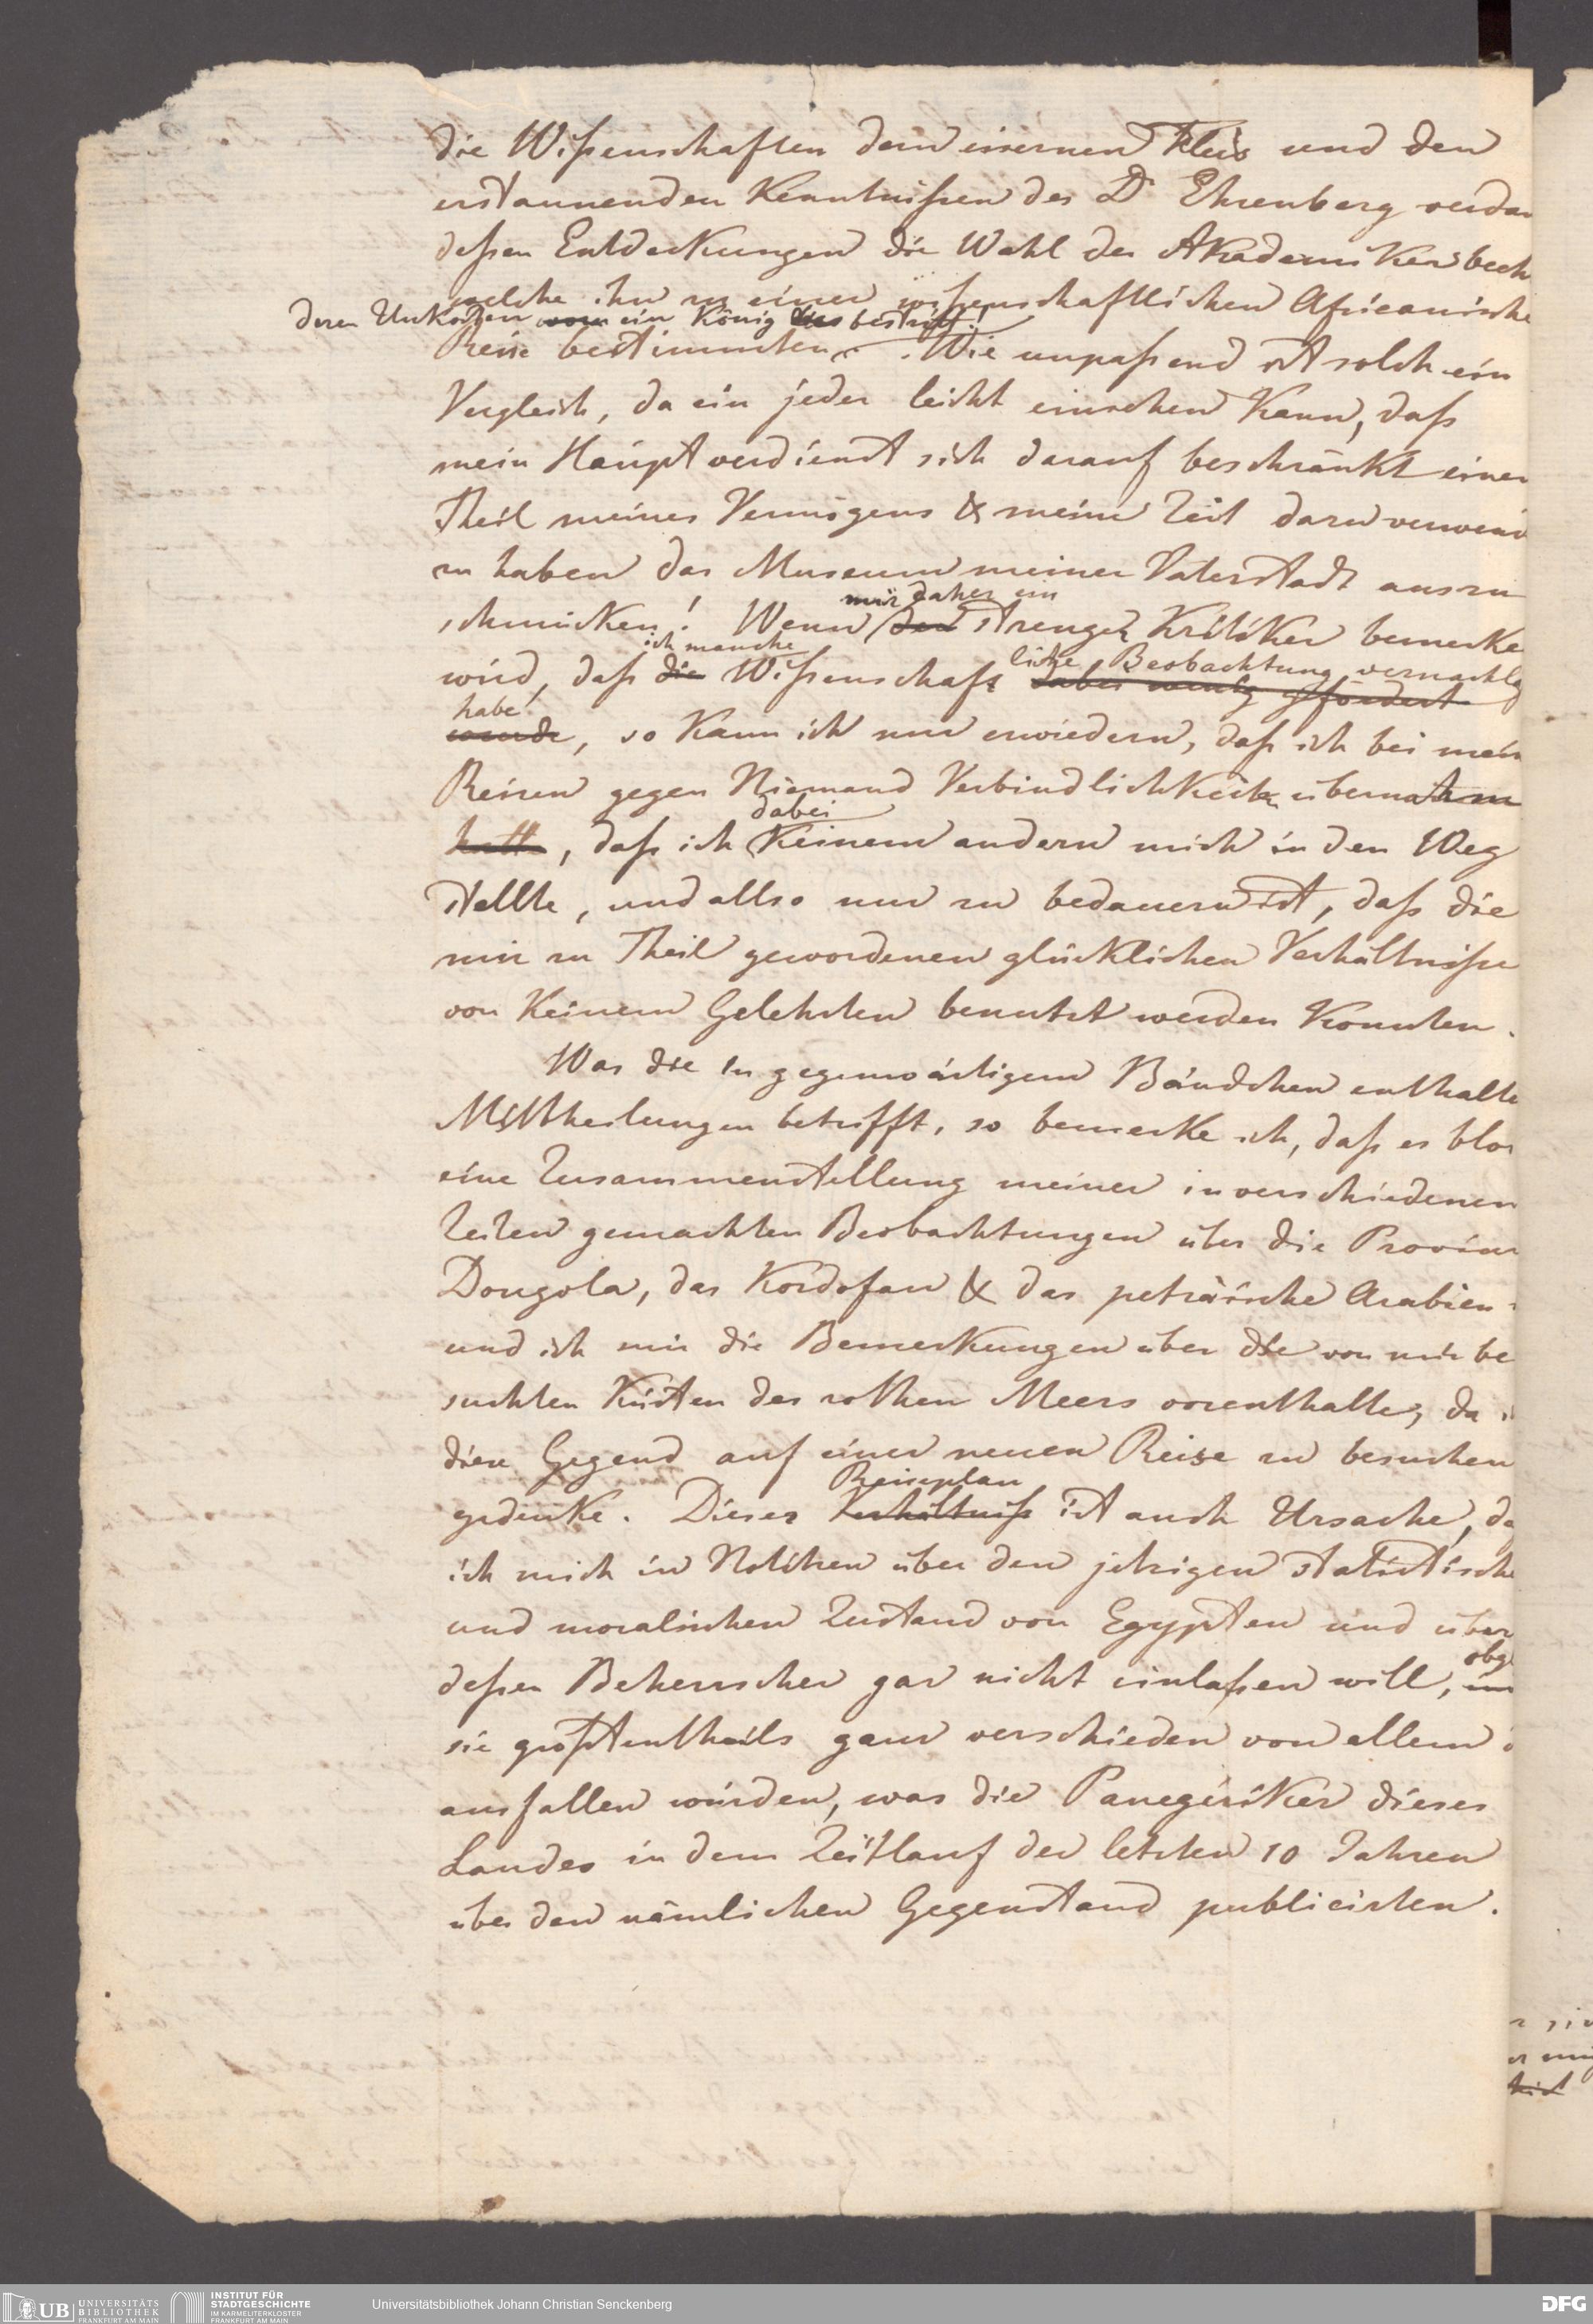 die Wißenschaften dem eisernen Fleis und den
erstaunenden Kenntnißen des Dr Ehrenberg verdan
deßen Entdeckungen die Wahl der Akademiker bech
welche ihn zu einer wißenschaftlichen Africanische
deren Unkosten vom ein König dies bestritt!
Reise bestimmten. Wie unpaßend ist solch ein
Vergleich, da ein jeder leicht einsehen kann, daß
mein Hauptverdienst sich darauf beschränkt einen
Theil meines Vermögens & meine Zeit dazu verwend
zu haben das Museum meiner Vaterstadt auszu
mir daher ein
schmücken! Wenn der strenger Kritiker bemerke
ich manche liche Beobachtung vernachlä
wird, daß die Wißenschaft dabei wenig gefördert
habe!
wurde, so kann ich nur erwiedern, daß ich bei mein
Reisen gegen Niemand Verbindlichkeiten übernahm
dabei
hatte, daß ich keinem andern mich in den Weg
stellte, und allso nur zu bedauern ist, daß die
mir zu Theil gewordenen glücklichen Verhältniße
von keinem Gelehrten benutzt werden konnten.
Was die in gegenwärtigem Bändchen enthalte
Mittheilungen betrifft, so bemerke ich, daß es blos
eine Zusammenstellung meiner in verschiedenen
Zeiten gemachten Beobachtungen über die Provinz
Dongola, das Kordofan & das peträische Arabien
und ich mir die Bemerkungen über die von mir be
suchten Küsten des rothen Meers vorenthalte, da i
diese Gegend auf einer neuen Reise zu besuchen
Reiseplan
gedenke. Dieser Verhältniß ist auch Ursache, da
ich mich in Notitzen über den jetzigen statistische
und moralischen Zustand von Egypten und über
obg
deßen Beherrscher gar nicht einlaßen will, un
sie größtentheils ganz verschieden von allem d
ausfallen würden, was die Panegiriker dieses
Landes in dem Zeitlauf der letzten 10 Jahren
über den nämlichen Gegenstand publicirten.
UB UNIVERSITÄTS
BIBLIOTHEK
FRANKFURT AM MAIN
INSTITUT FÜR
STADTGESCHICHTE
IM KARMELITERKLOSTER
FRANKFURT AM MAIN
Universitätsbibliothek Johann Christian Senckenberg
DFG